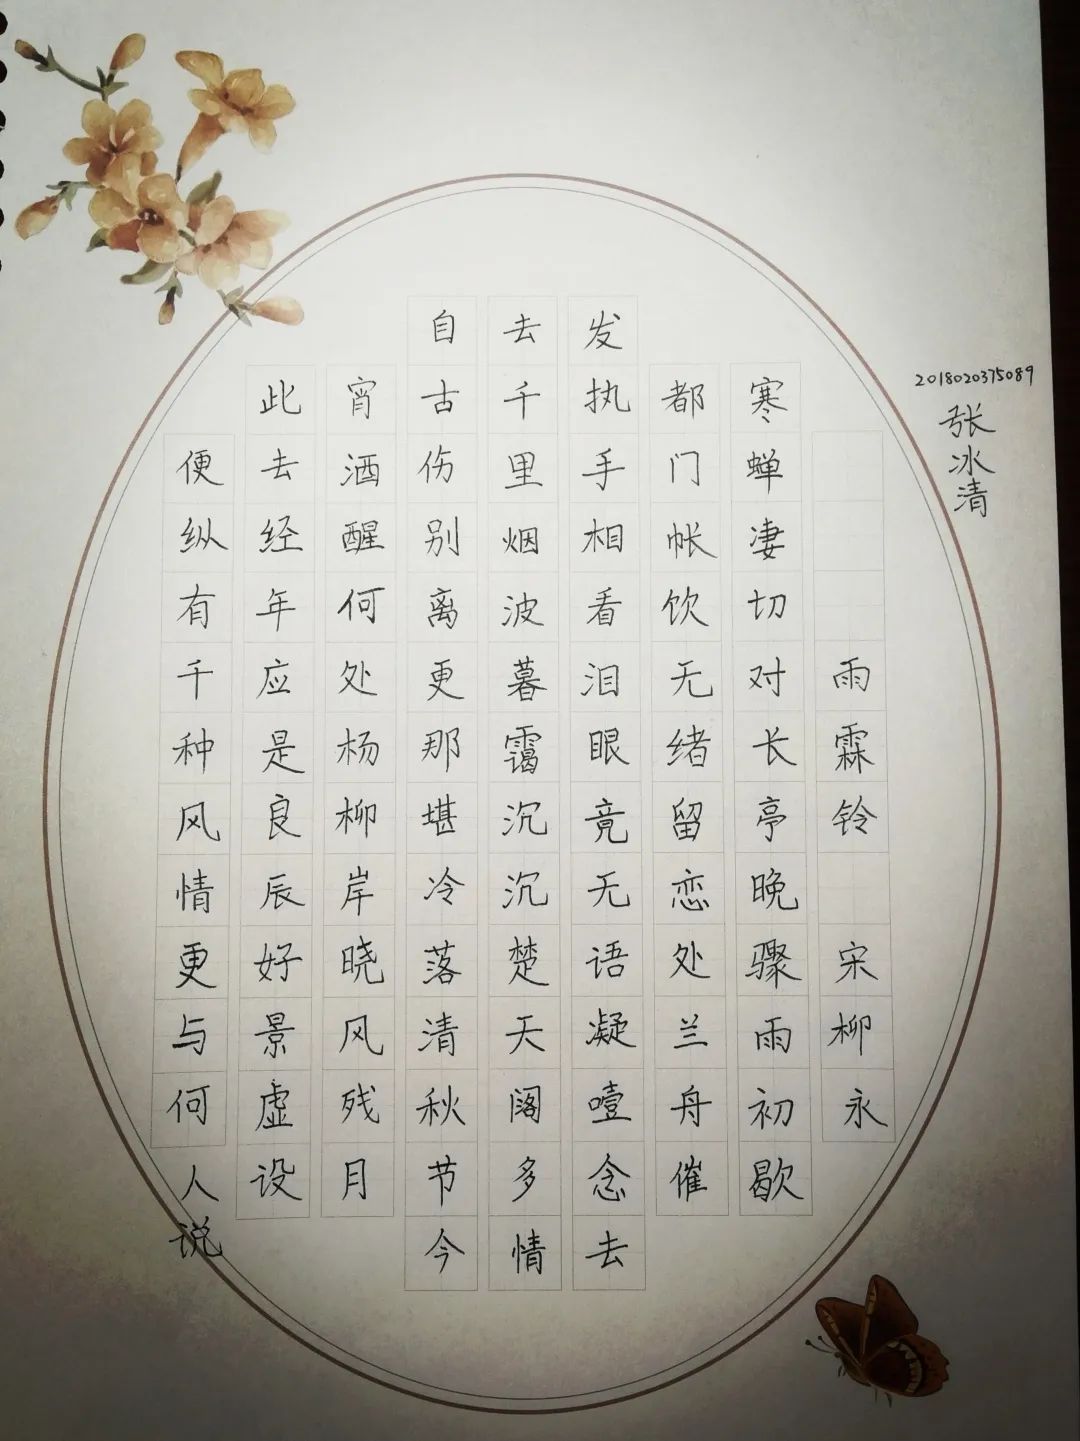 2018020375089
张冰清
雨霖铃 宋柳永
寒蝉凄切对长亭晚骤雨初歇
都门帐饮无绪留恋处兰舟催
发执手相看泪眼竟无语凝噎念去
去千里烟波暮霭沉沉楚天阔多情
自古伤别离更那堪冷落清秋节今
宵酒醒何处杨柳岸晓风残月
此去经年应是良辰好景虚设
便纵有千种风情更与何人说